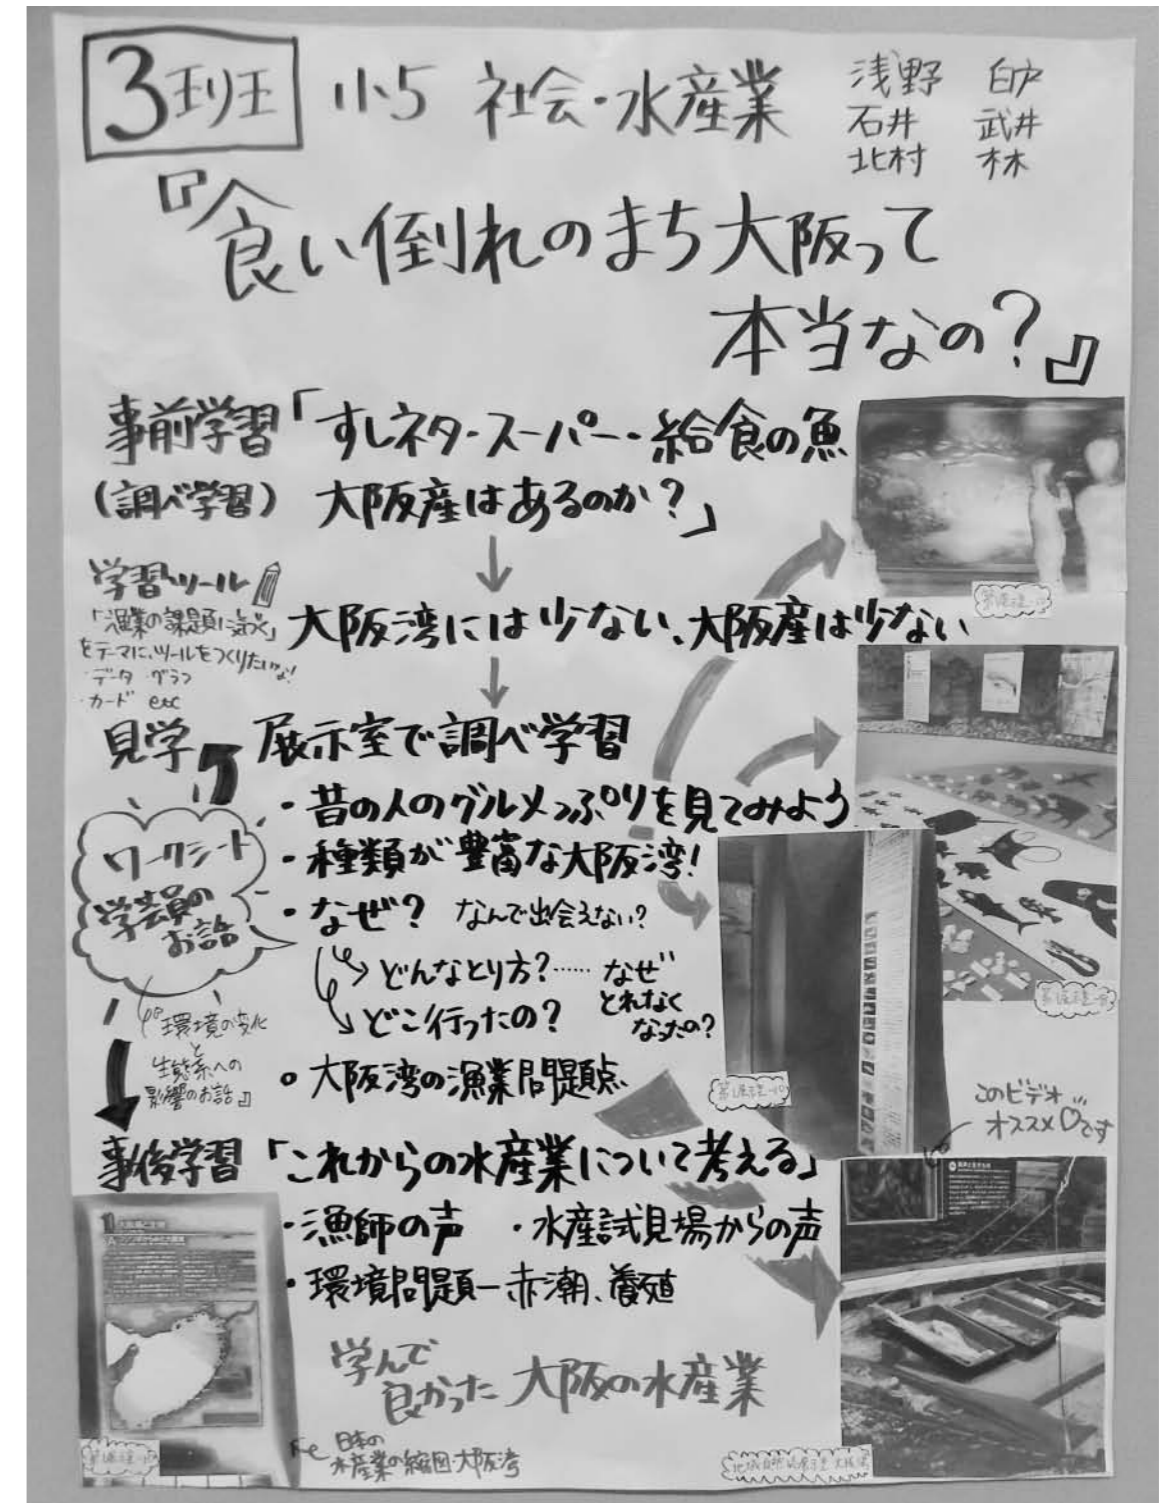 3班 小5 社会・水産業
浅野 白戸
石井 武井
北村 林
『食い倒れのまち大阪って
本当なの?』
事前学習「すしネタ・スーパー・給食の魚
(調べ学習) 大阪産はあるのか?」
学習ツール
「漁業の課題に気づく」
をテーマに、ツールをつくりたいな!
・データ ・グラフ
・カード etc
大阪湾には少ない、大阪産は少ない
見学 展示室で調べ学習
・昔の人のグルメっぷりを見てみよう
・種類が豊富な大阪湾!
・なぜ? なんで出会えない?
どんなとり方?…… なぜ
とれなく
なったの?
どこ行ったの?
・大阪湾の漁業問題点
ワークシート
学芸員の
お話
『環境の変化
と
生態系への
影響のお話』
このビデオ…
オススメ♡です
事後学習「これからの水産業について考える」
・漁師の声 ・水産試見場からの声
・環境問題ー赤潮、養殖
学んで
良かった 大阪の水産業
日本の
水産業の縮図・大阪湾